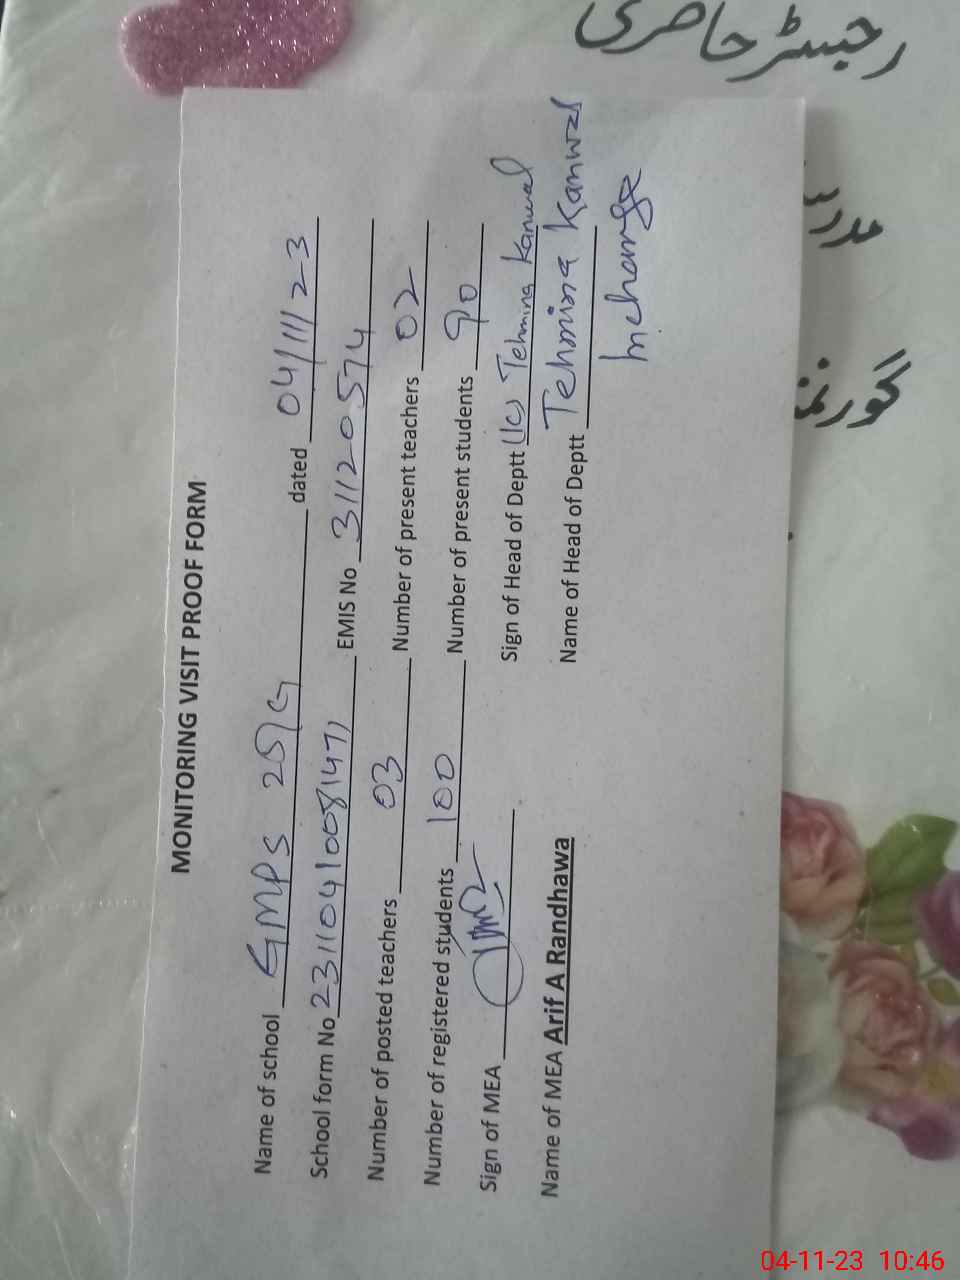 رجسٹر حاضری
MONITORING VISIT PROOF FORM
Name of school GMPS 25/G dated 04/11/23
School form No 23110410081471 EMIS No 31120574
Number of posted teachers 03 Number of present teachers 02
Number of registered students 100 Number of present students 90
Sign of MEA Sign of Head of Deptt (Ic) Tehmina Kanwal
Name of MEA Arif A Randhawa Name of Head of Deptt Tehmina Kanwal
Incharge
04-11-23 10:46